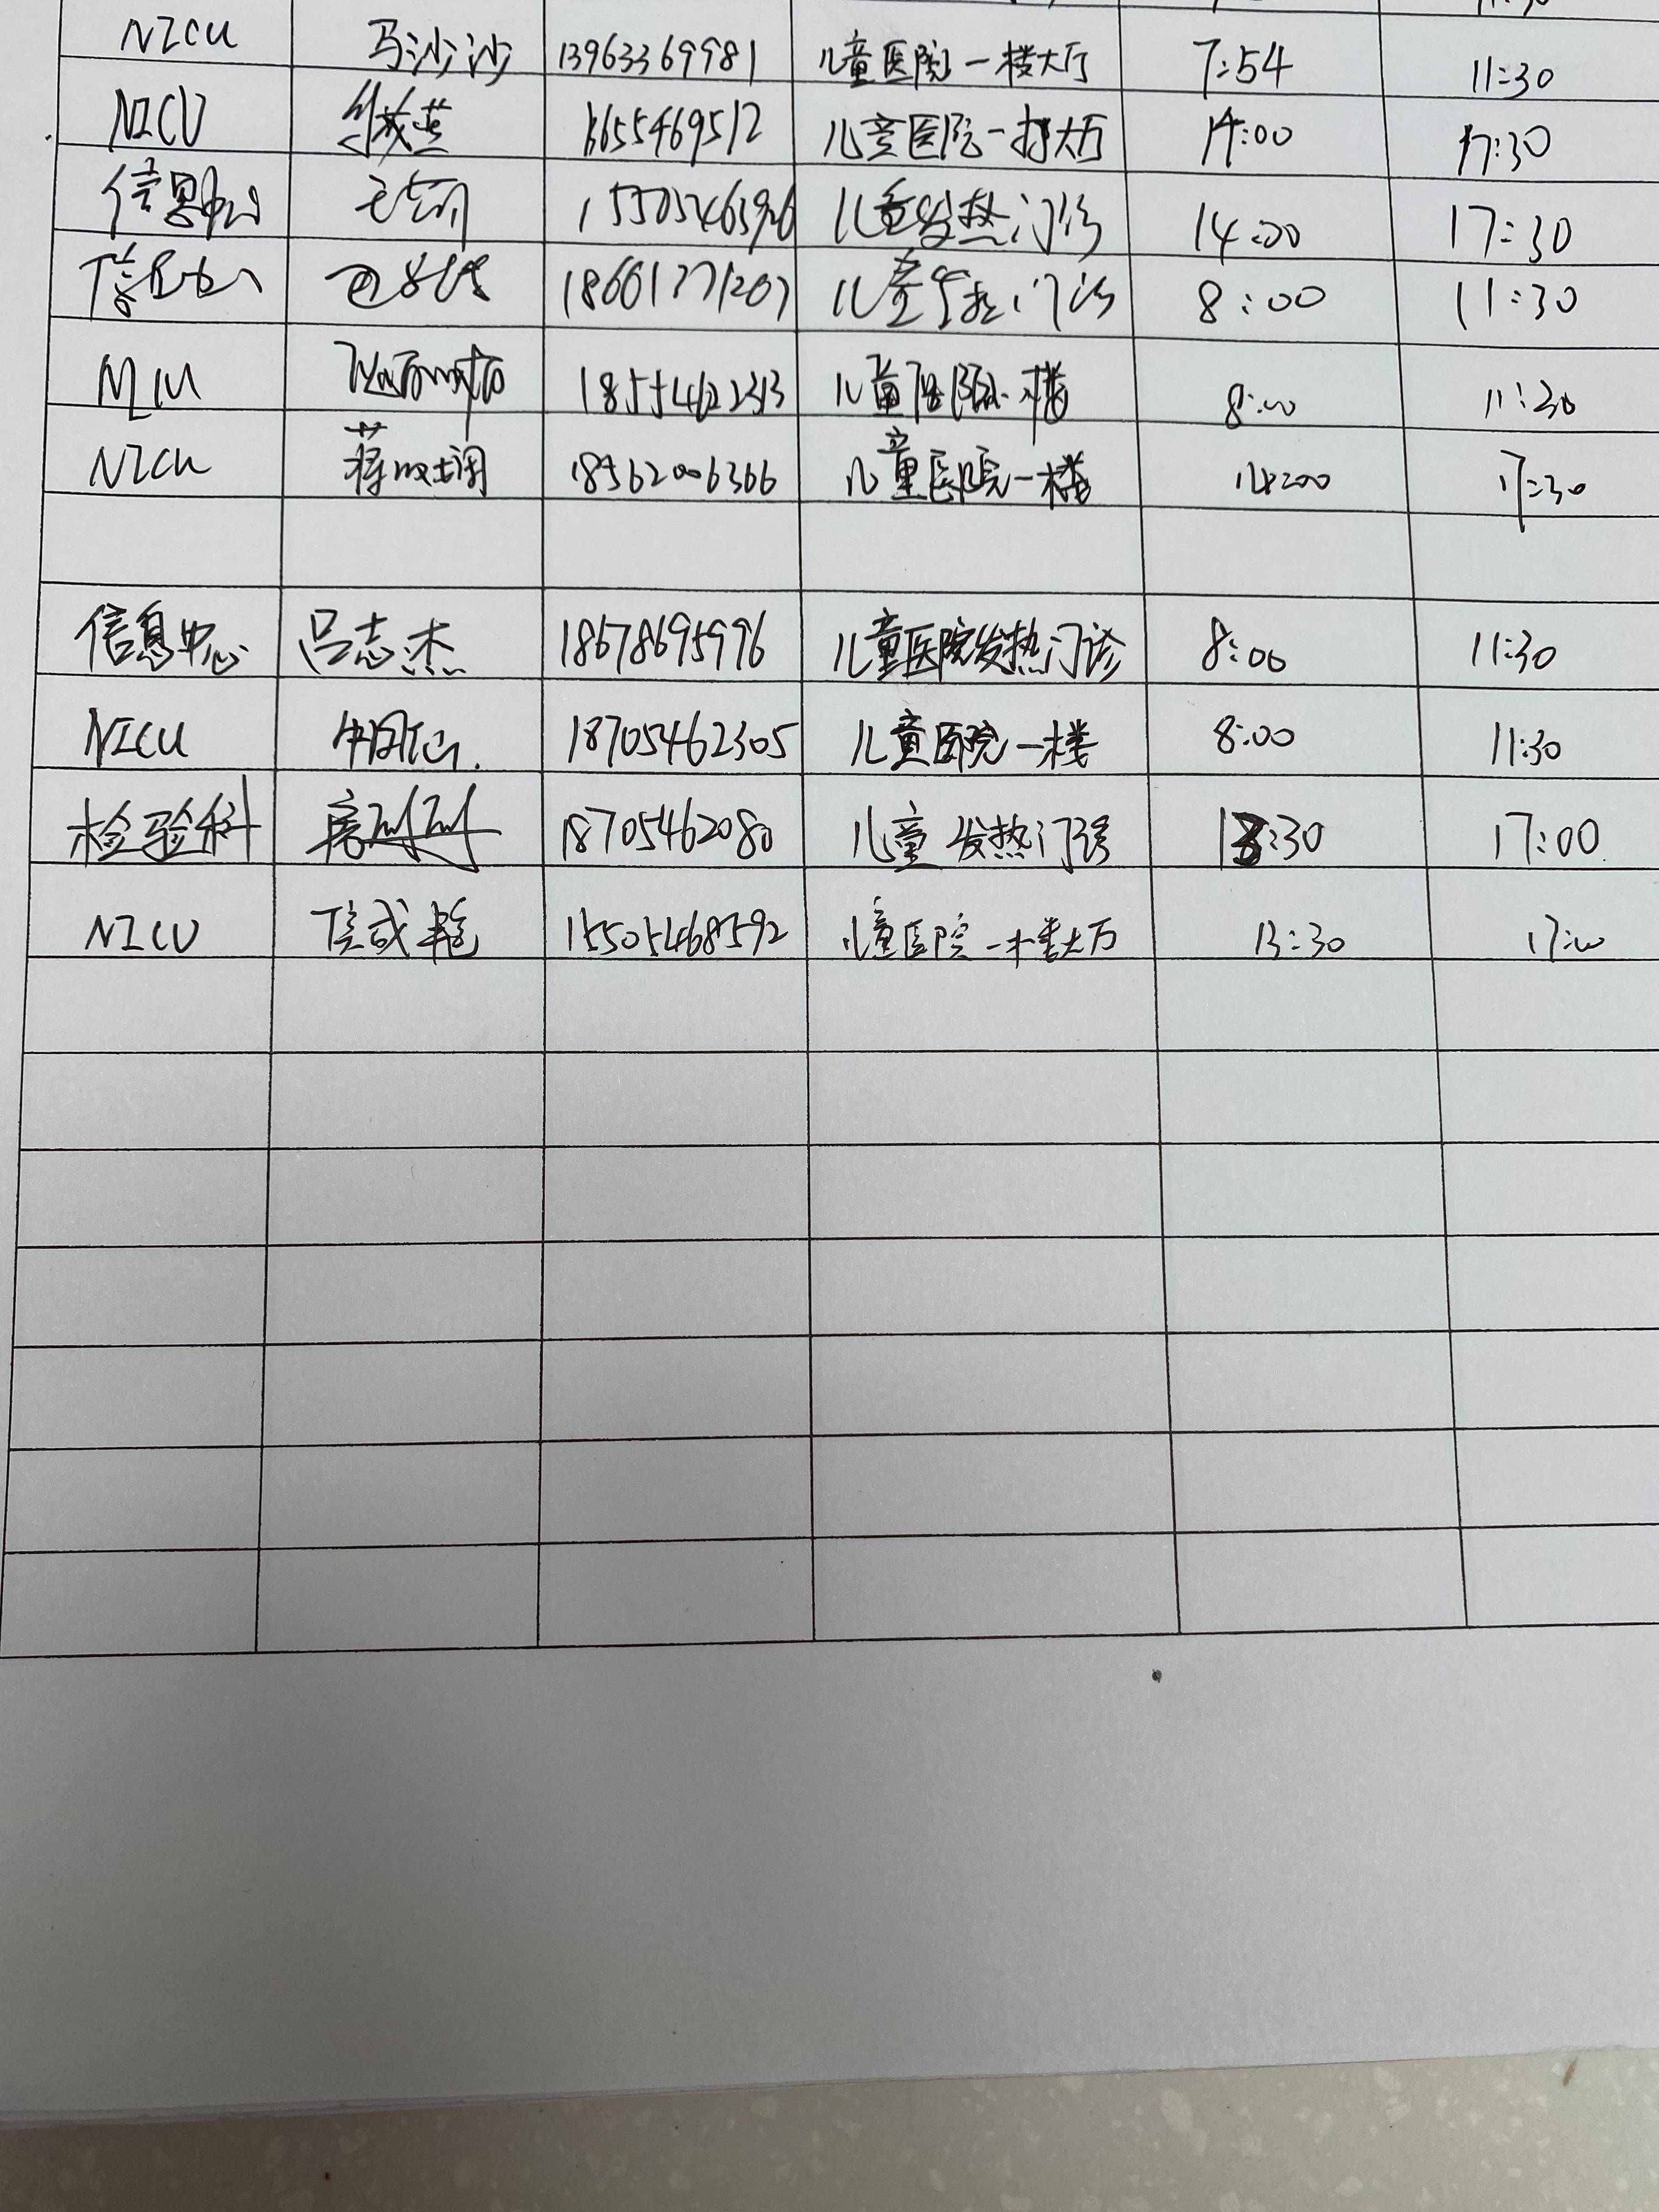 NICU 马沙沙 13963369981 儿童医院一楼大厅 7:54 11:30
NICU 燕 16655469512 儿童医院一楼大厅 14:00 17:30
信息中心 15505463926 儿童发热门诊 14:00 17:30
信息中心 18661771207 儿童发热门诊 8:00 11:30
NICU 儿童医院一楼 8:00 11:30
NICU 蒋 18562006366 儿童医院一楼 14:00 17:30
信息中心 吕志杰 18678695996 儿童医院发热门诊 8:00 11:30
NICU 18705462305 儿童医院一楼 8:00 11:30
检验科 18705462080 儿童发热门诊 13:30 17:00
NICU 15505468592 儿童医院一楼大厅 13:30 17:00